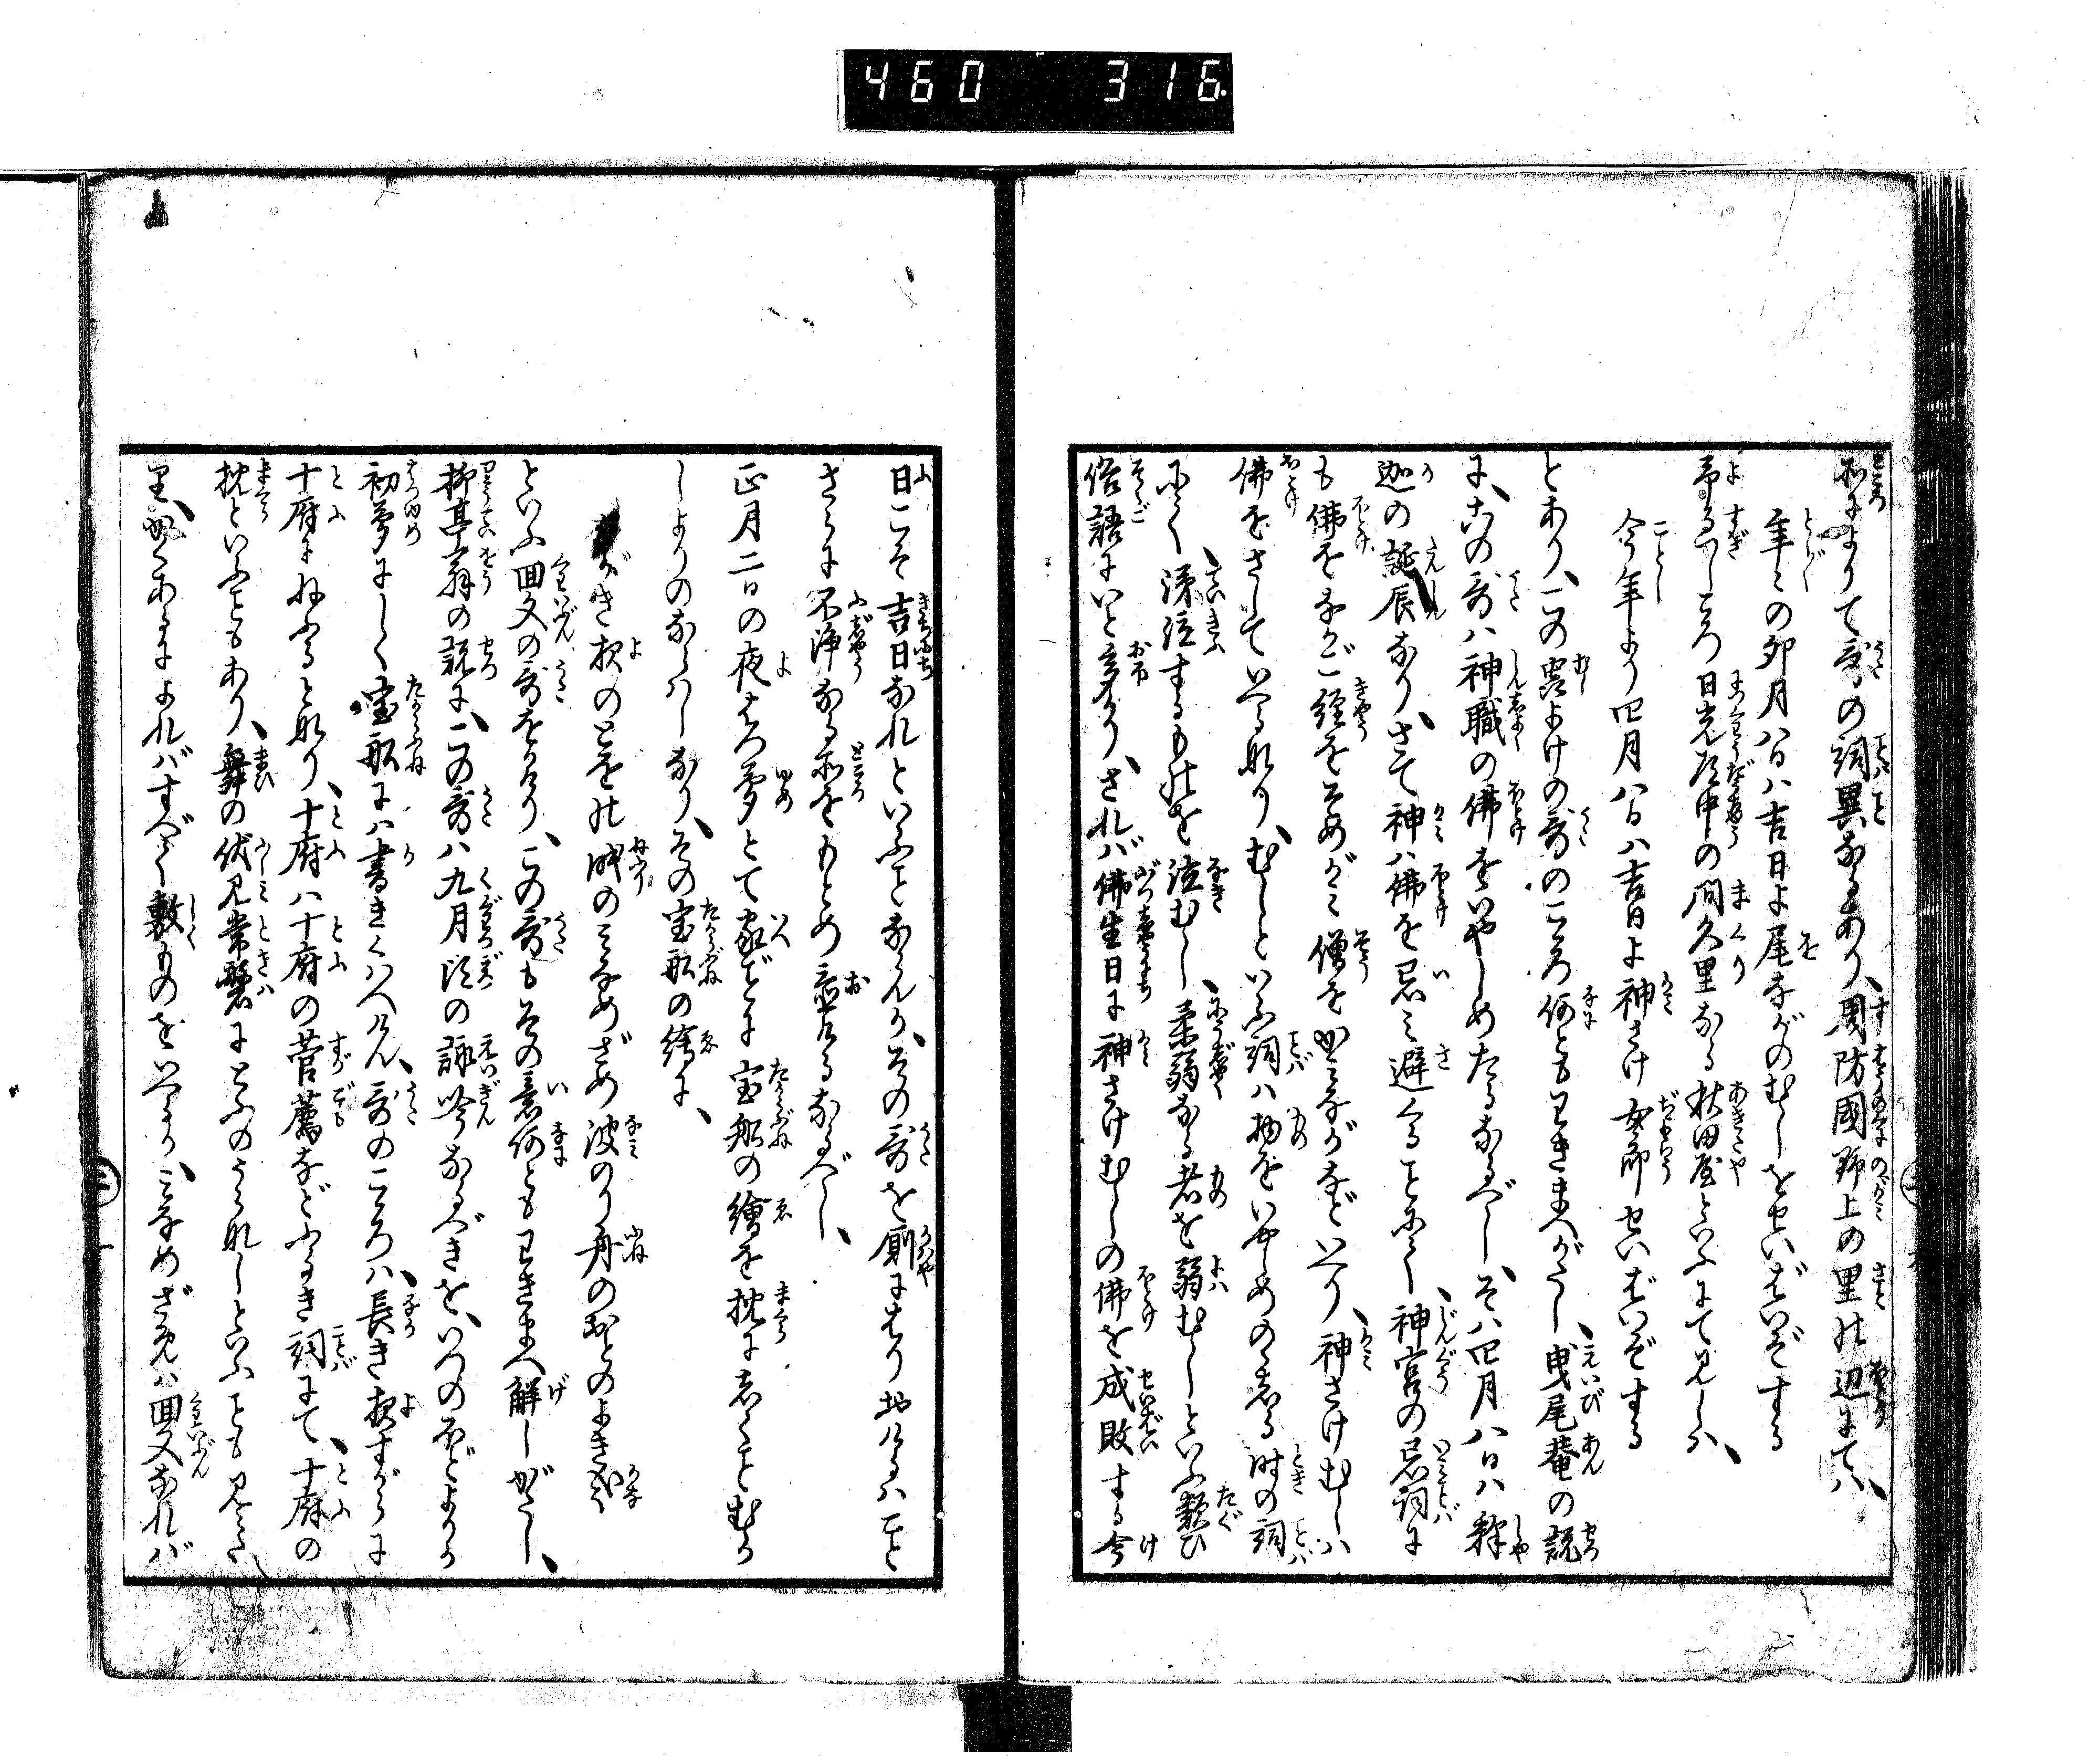 460 316
所によりて哥の詞異なるあり、周防國野上の里の辺にては、
年々の卯月八日は吉日よ尾ながのむしをせいばいぞする
予すぎしころ日光道中の間久里なる秋田屋といふにて見しは、
今年より四月八日は吉日よ神さけ女郎せいばいぞする
とあり、この虫よけの哥のこころ何ともわきまへがたし、曳尾菴の説
に、この哥は神職の佛をいやしめたるなるべし、そは四月八日は釈
迦の誕辰なり、さて神は佛を忌み避くることにて、神宮の忌詞に
も佛をなかご経をそめがみ僧をかみながなどいへり、神さけむしは
佛をさしていへるなり、むしといふ詞は物をいやしめのゝしる時の詞
にて、涕泣するものを泣むし、柔弱なる者を弱むしといふ類ひ
俗語にいと多かり、されば佛生日に神さけむしの佛を成敗する今
日こそ吉日なれといふことならんか、その哥を厠にはり出けるは、こと
さらに不浄なる所をもとめ
正月二日の夜はつ夢とて家ごとに宝船の繪を枕にしくことむか
しよりのならはしなり、その宝船の繪に、
ながき夜のとをの眠のみなめざめ波のり舟のおとのよきかな
といふ回文の哥をかけり、この哥もその意何ともわきまへ解しがたし、
柳亭翁の説に、この哥は九月尽の詠吟なるべきを、いつのほどよりか
初夢にしく宝船には書きくはへけん、哥のこころは、長き夜すがらに
十府にねぶるとなり、十府は十府の菅薦などふるき詞にて、十府の
枕といふこともあり、舞の伏見常磐にとふのうらなしといふことも見えた
り、かくあるによればすべて敷ものをいへるか、みなめざめは回文なれば